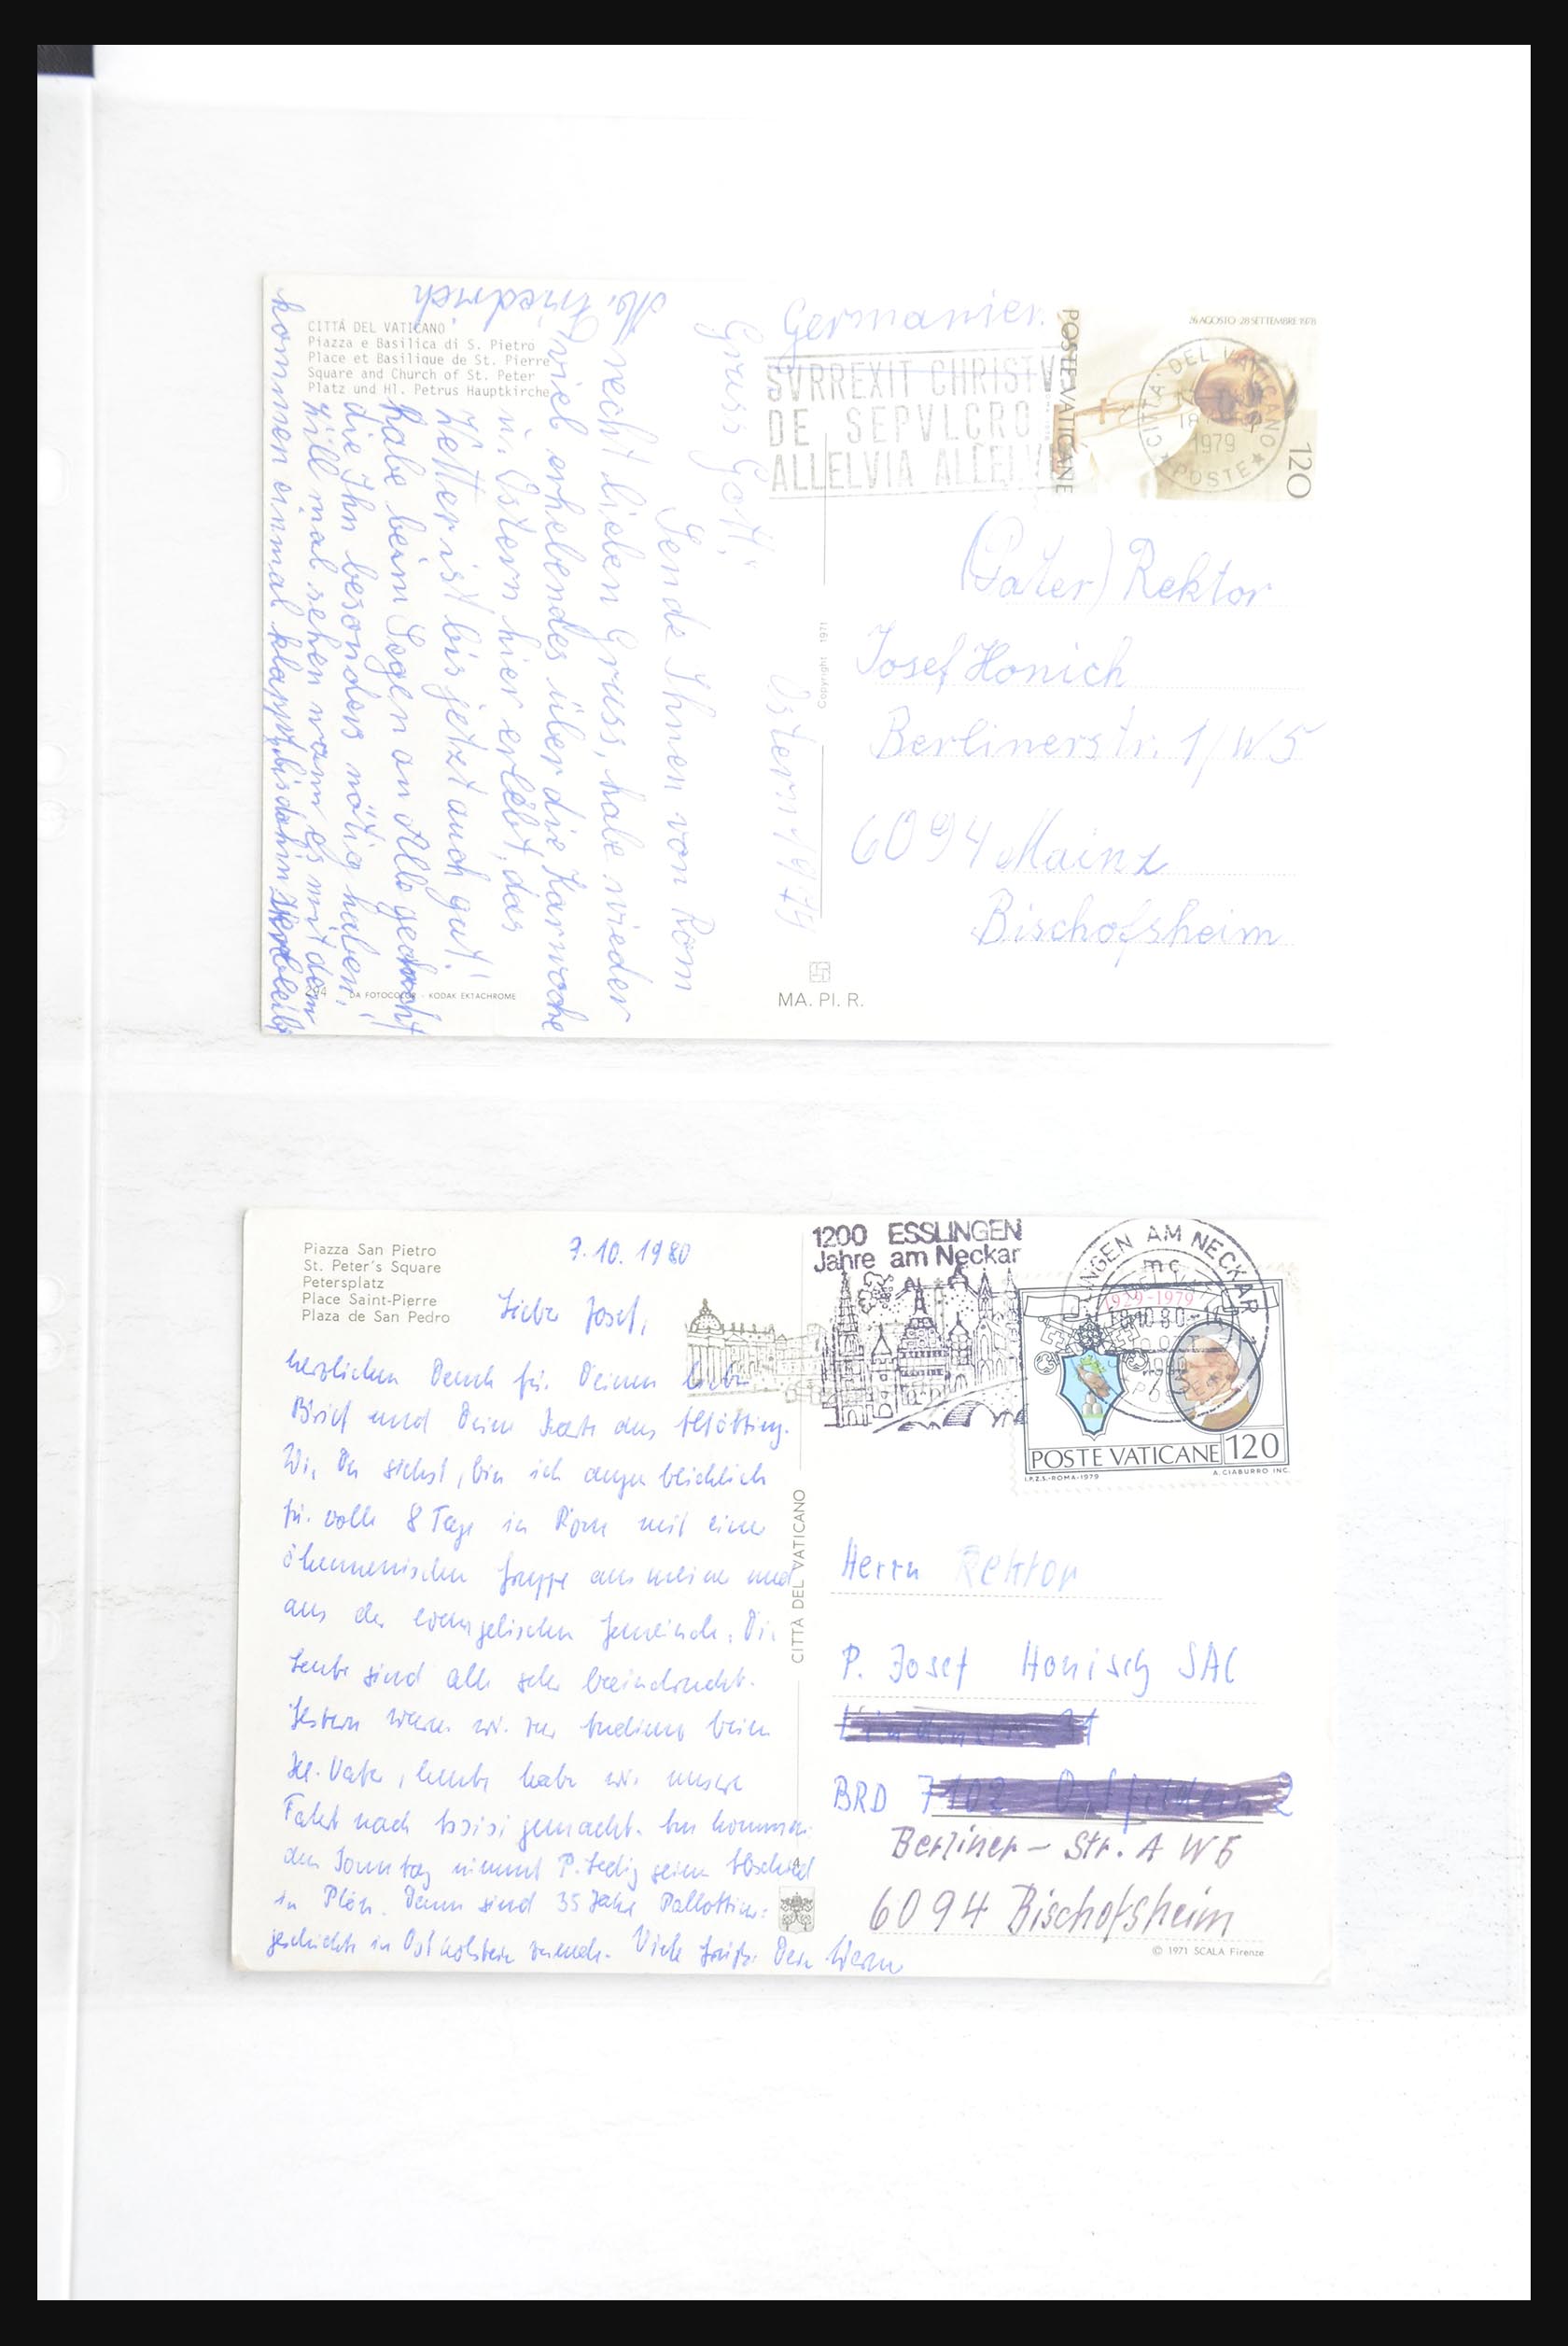 CITTÁ DEL VATICANO
Piazza e Basilica di S. Pietro
Place et Basilique de St. Pierre
Square and Church of St. Peter
Platz und Hl. Petrus Hauptkirche
Germanien.
SVRREXIT CHRISTV
DE SEPVLCRO
ALLELVIA ALLELV
POSTE VATICANE
26 AGOSTO-28 SETTEMBRE 1978
120
CITTA' DEL VATICANO
1979
POSTE
Ostern 1979
Grüss Gott!
Sende Ihnen von Rom
recht lieben Gruss, habe wieder
viel erhebendes über die Karwoche
u. Ostern hier erlebt, das
Wetter ist bis jetzt auch gut!
habe beim Segen an Alle gedacht
die Ihn besonders nötig haben!
Will mal sehen wann es mit dem
kommen einmal klappt, bis dahin
M. Friedrich
(Pater) Rektor
Josef Honich
Berlinerstr. 1/W5
6094 Mainz
Bischofsheim
Copyright 1971
294 DA FOTOCOLOR - KODAK EKTACHROME
MA. PI. R.
Piazza San Pietro
St. Peter's Square
Petersplatz
Place Saint-Pierre
Plaza de San Pedro
7.10.1980
1200 ESSLINGEN
Jahre am Neckar
NGEN AM NECKAR
mc
1929-1979
POSTE VATICANE 120
I.P.Z.S.-ROMA-1979
A. CIABURRO INC.
Lieber Josef,
herzlichen Dank für Deinen lieben
Brief und Deine Karte aus Altötting.
Wie Du siehst, bin ich augenblicklich
für volle 8 Tage in Rom mit einer
ökumenischen Gruppe aus meiner und
aus der evangelischen Gemeinde. Die
Leute sind alle sehr beeindruckt.
Gestern waren wir zur Audienz beim
Hl. Vater, heute haben wir unsere
Fahrt nach Assisi gemacht. Am kommen-
den Sonntag nimmt P. Ledig seinen Abschied
in Plön. Dann sind 35 Jahre Pallottiner-
geschichte in Ostholstein Viele Grüße Dein Werner
CITTÀ DEL VATICANO
Herrn Rektor
P. Josef Honisch SAC
BRD 7102
Berliner-Str. 1 W5
6094 Bischofsheim
© 1971 SCALA Firenze